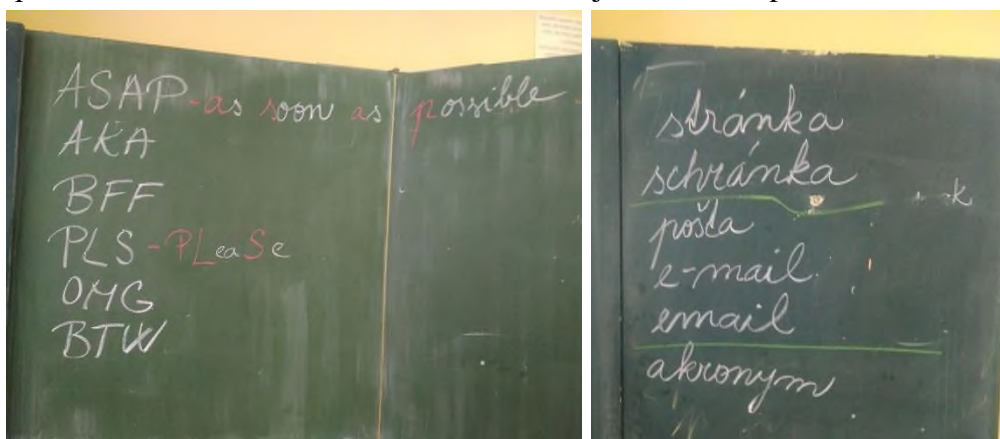 ASAP - as soon as possible -
AKA
BFF
PLS - PLeaSe
OMG
BTW
stránka
schránka
pošta
e-mail
email
akronym